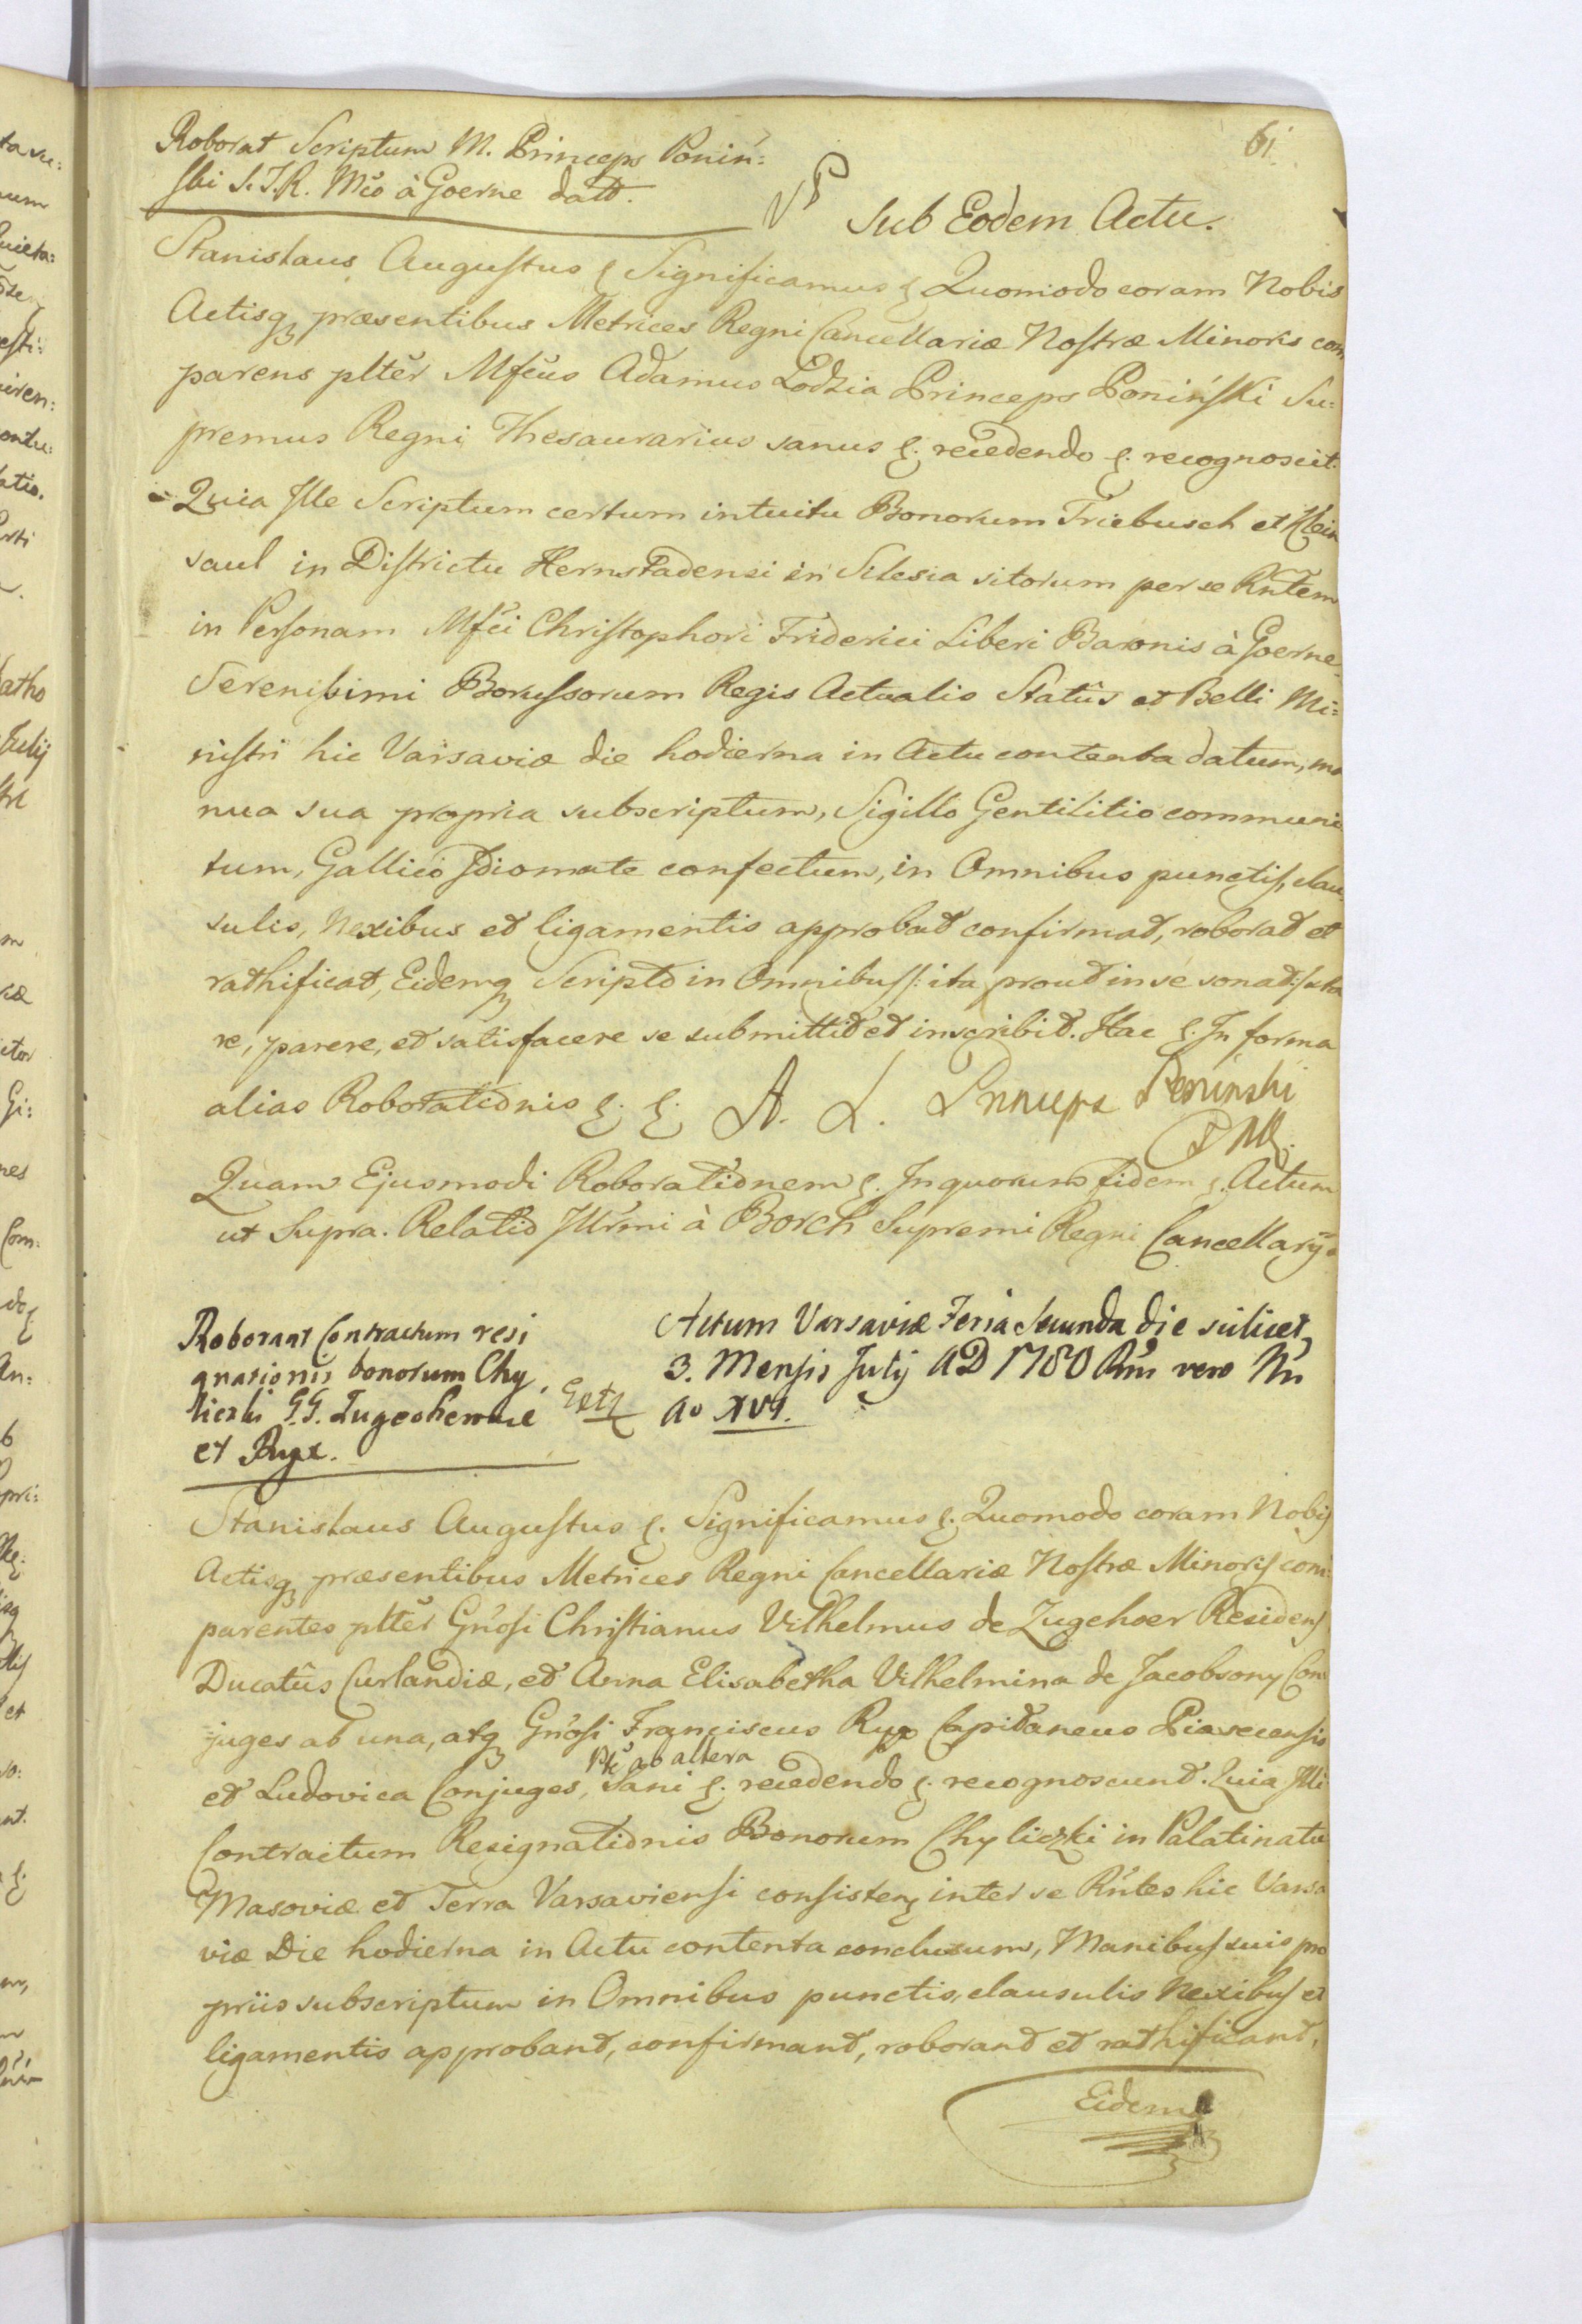 61
Roborat Scriptum M. Princeps Poniń:
ski S. T. R. Mco à Goerne datt.
Sub Eodem Actu.
Stanislaus Augustus &. Significamus &. Quomodo coram Nobis
Actisq, præsentibus Metrices Regni Cancellariæ Nostræ Minoris com
parens plter Mfcus Adamus Łodzia Princeps Poniński Su:
premus Regni Thesaurarius sanus &. recedendo &. recognoscit.
Quia Ille Scriptum certum intuitu Bonorum Triebusch et Klein
saul in Districtu Hernstadensi in Silesia sitorum per se Rntem
in Personam Mfci Christophori Friderici Liberi Baronis à Goerne
Serenissimi Borussorum Regis Actualis Statûs et Belli Mi:
nistri hic Varsaviæ die hodierna in Actu contenta datum, ma
nua sua propria subscriptum, Sigillo Gentilitio communi
tum, Gallico Idiomate confectum, in Omnibus punctis, clau
sulis, Nexibus et ligamentis approbat confirmat, roborat et
rathificat, Eidemq, Scripto in Omnibus /: ita prout in se sonat :/ sta
re, parere, et satisfacere se submittit et inscribit. Hac &. In forma
alias Roborationis &. &. A. L. Princeps Poninski
Quam Ejusmodi Roborationem &. In quorum fidem &. Actum
ut Supra. Relatio Illrmi à Borch Supremi Regni Cancellarÿ.
Roborant Contractum resi
gnationis bonorum Chy
liczki G.G. Zugeoherowie
et Ryx.
Actum Varsaviæ Feria Secunda die scilicet
3. Mensis Julÿ AD 1780 Rni vero Nri
Ao XVI.
Stanislaus Augustus &. Significamus &. Quomodo coram Nobis
Actisq, præsentibus Metrices Regni Cancellariæ Nostræ Minoris com:
parentes plter Gnosi Christianus Vilhelmus de Zugehoer Residens
Ducatûs Curlandiæ, et Anna Elisabetha Vilhelmina de Jacobsony Con
juges ab una, atq, Gnosi Franciscus Ryx Capitaneus Piasecensis
et Ludovica Conjuges, pte ab altera Sani &. recedendo &. recognoscunt. Quia Illi
Contractum Resignationis Bonorum Chyliczki in Palatinatu
Masoviæ et Terra Varsaviensi consisten, inter se Rntes hic Varsa
viæ Die hodierna in Actu contenta conclusum, Manibus suis pro
priis subscriptum in Omnibus punctis, clausulis Nexibus et
ligamentis approbant, confirmant, roborant et rathificant,
Eidemq